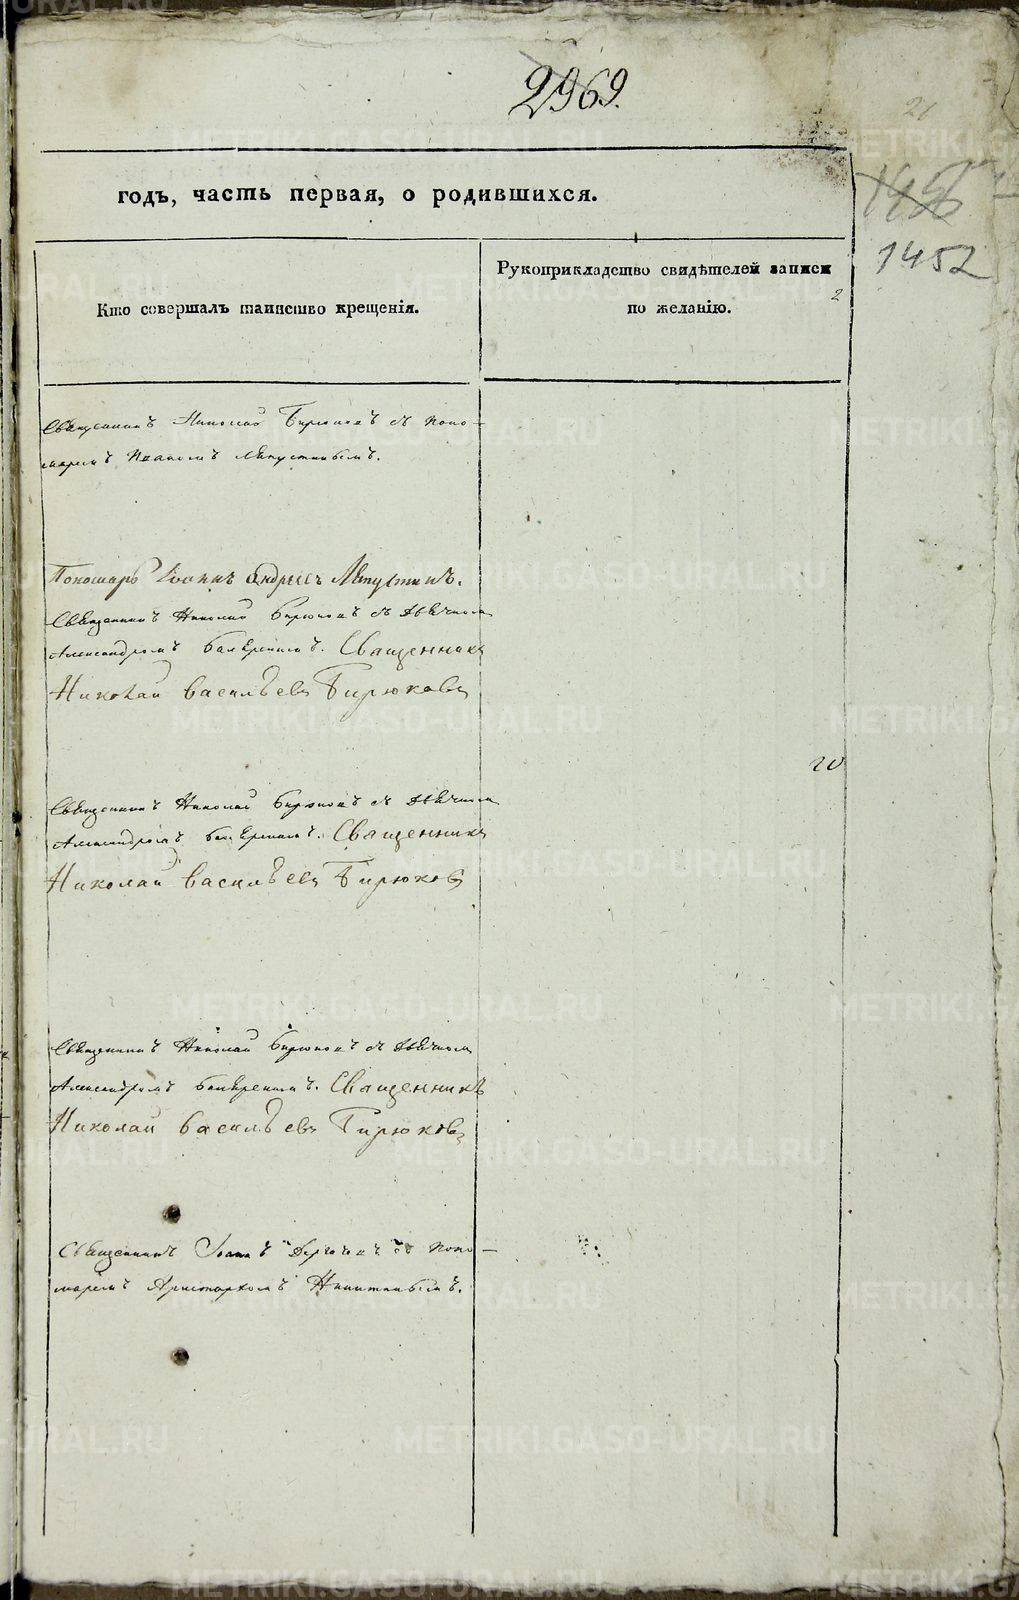 2969.
21
1452
годъ, часть первая, о родившихся.
Кто совершалъ таинство крещенія.
Рукоприкладство свидѣтелей записи
по желанію.
2
Священникъ Николай Бирюковъ съ поно-
маремъ
Пономарь Іоаннъ Андреевъ
Священникъ Николай Бирюковъ съ дьячкомъ
Александромъ Священникъ
Николай Васильевъ Бирюковъ
20
Священникъ Николай Бирюковъ съ дьячкомъ
Александромъ Священникъ
Николай Васильевъ Бирюковъ
Священникъ Николай Бирюковъ съ дьячкомъ
Александромъ Священникъ
Николай Васильевъ Бирюковъ
Священникъ Іоаннъ съ поно-
маремъ Аристархомъ Никитинымъ.
METRIKI.GASO-URAL.RU